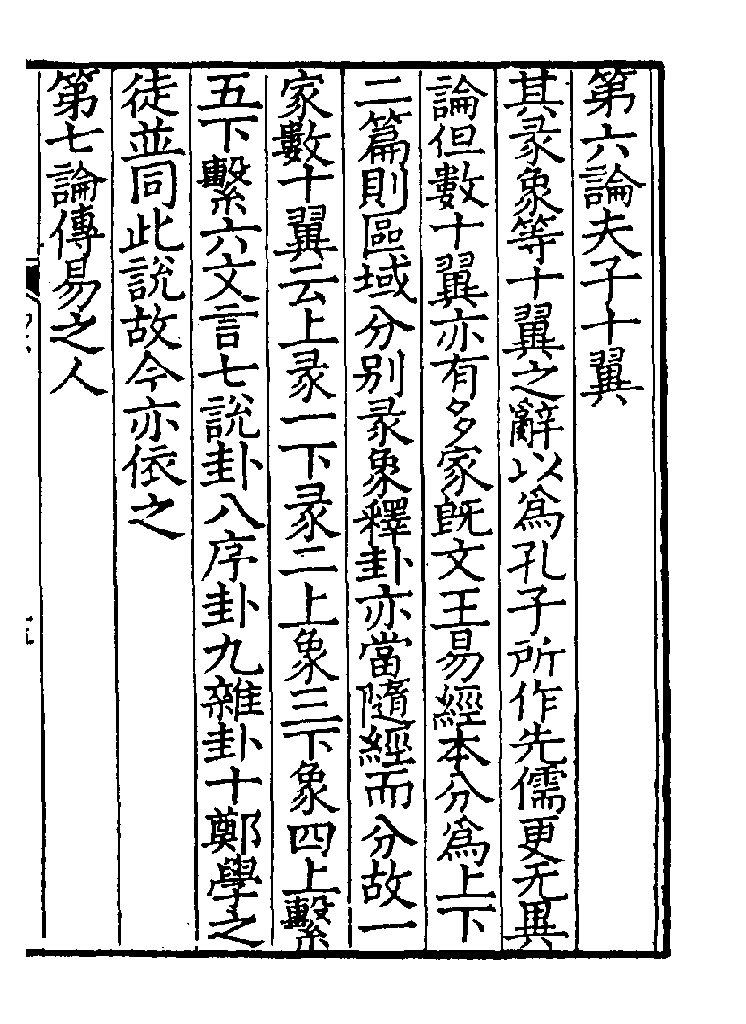 第六論夫子十翼
其彖象等十翼之辭以為孔子所作先儒更无異
論但數十翼亦有多家既文王易經本分為上下
二篇則區域分別彖象釋卦亦當隨經而分故一
家數十翼云上彖一下彖二上象三下象四上繫
五下繫六文言七說卦八序卦九雜卦十鄭學之
徒並同此說故今亦依之
第七論傳易之人